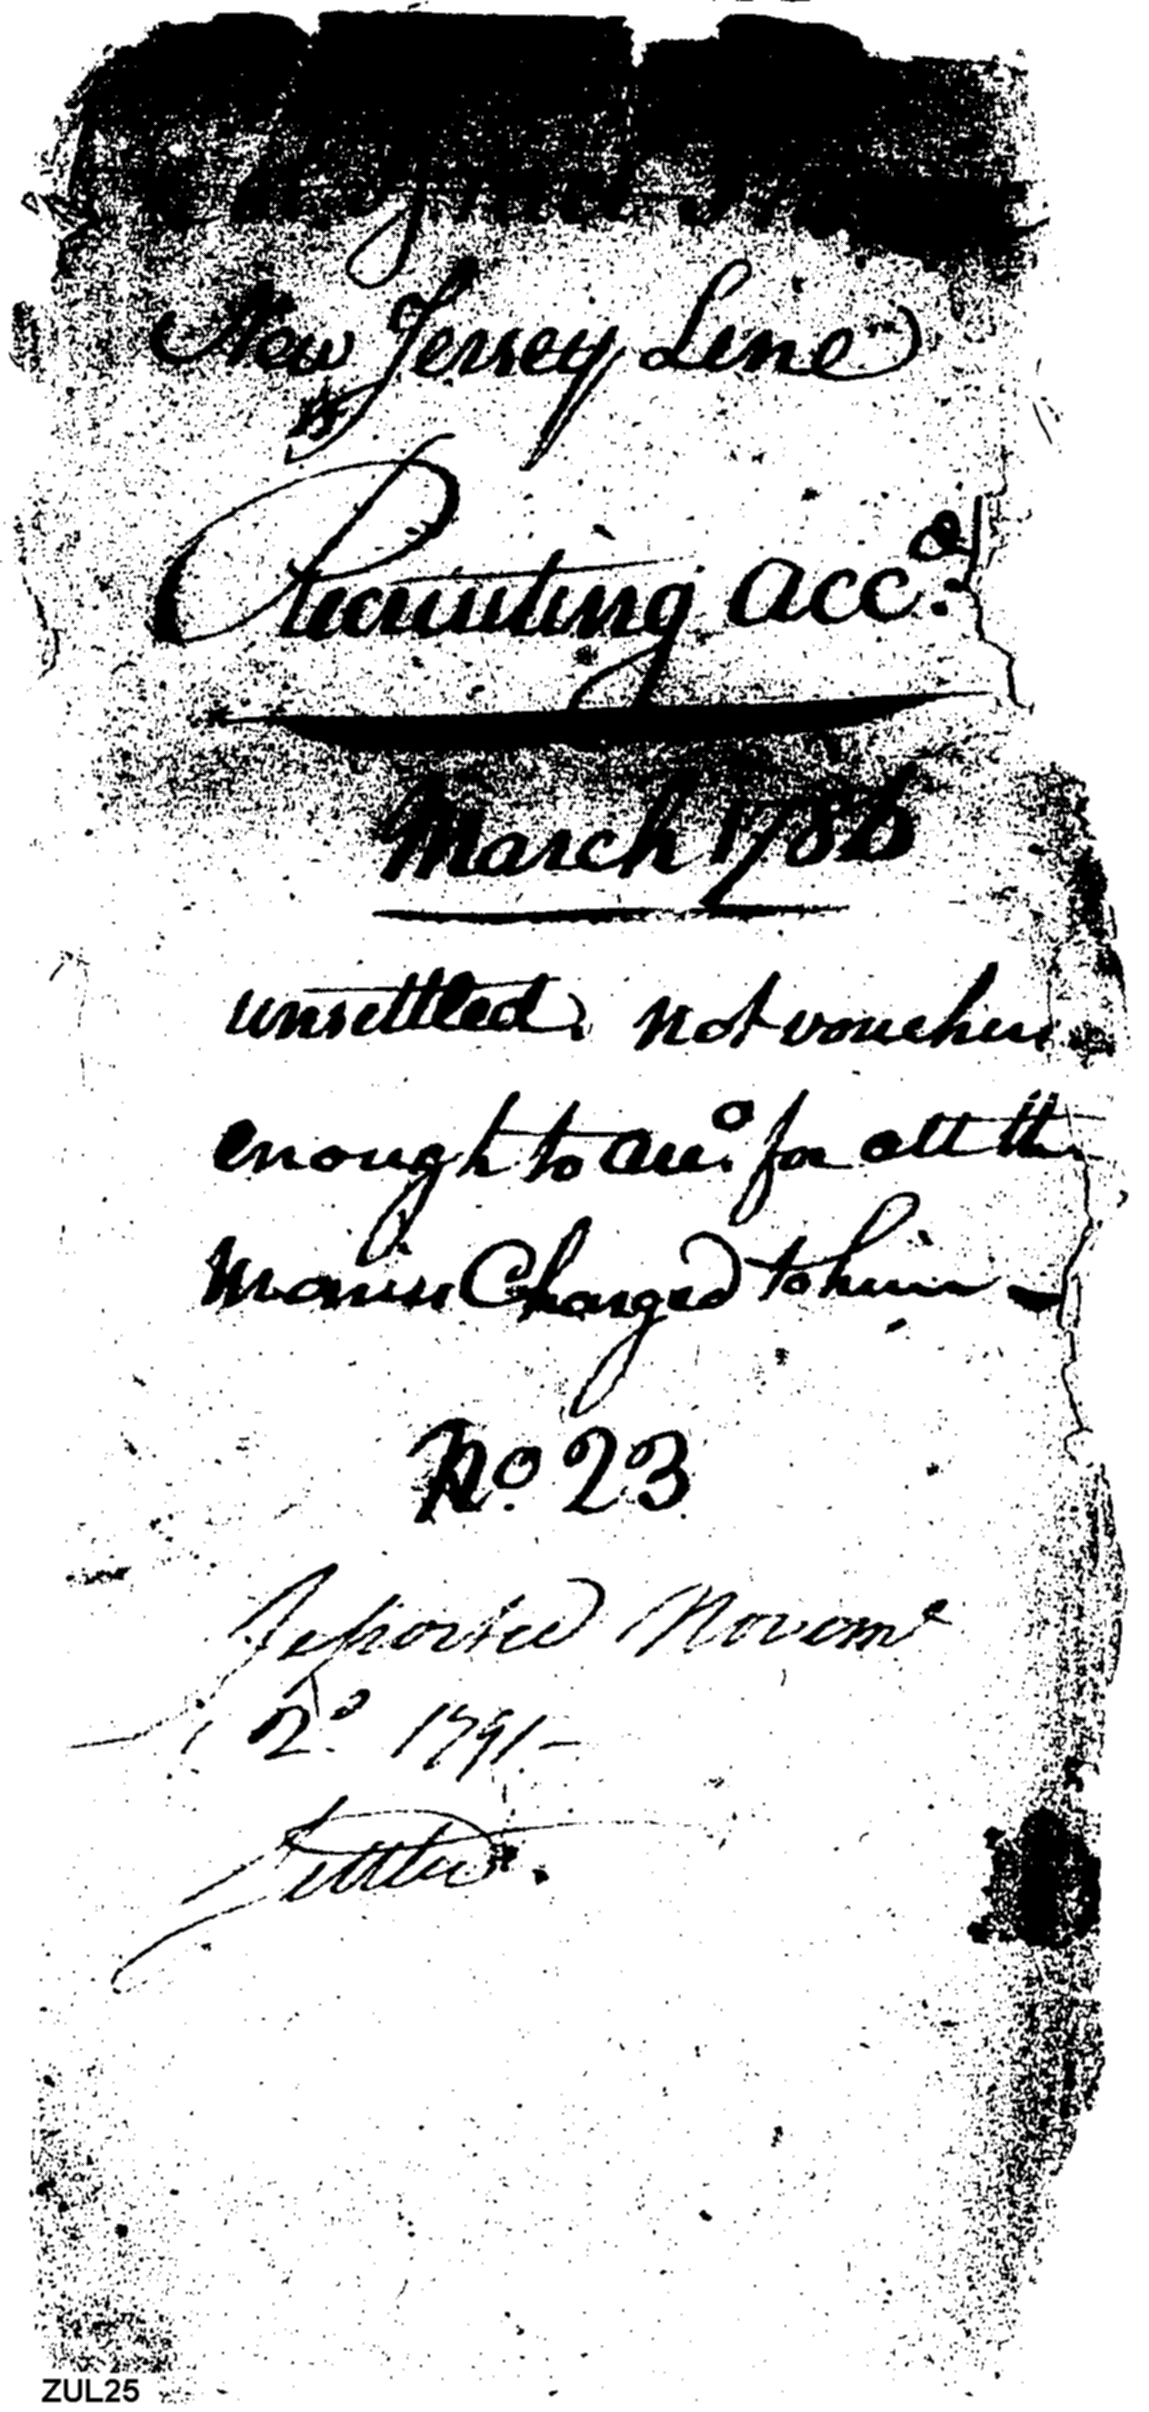 New Jersey Line
Recruiting acco.
March 1786
unsettled. not vouchers
enough to acco. for all the
Monies Charged to him
No. 23
Reported Novemr
2d. 1791 -
Settled.
ZUL25